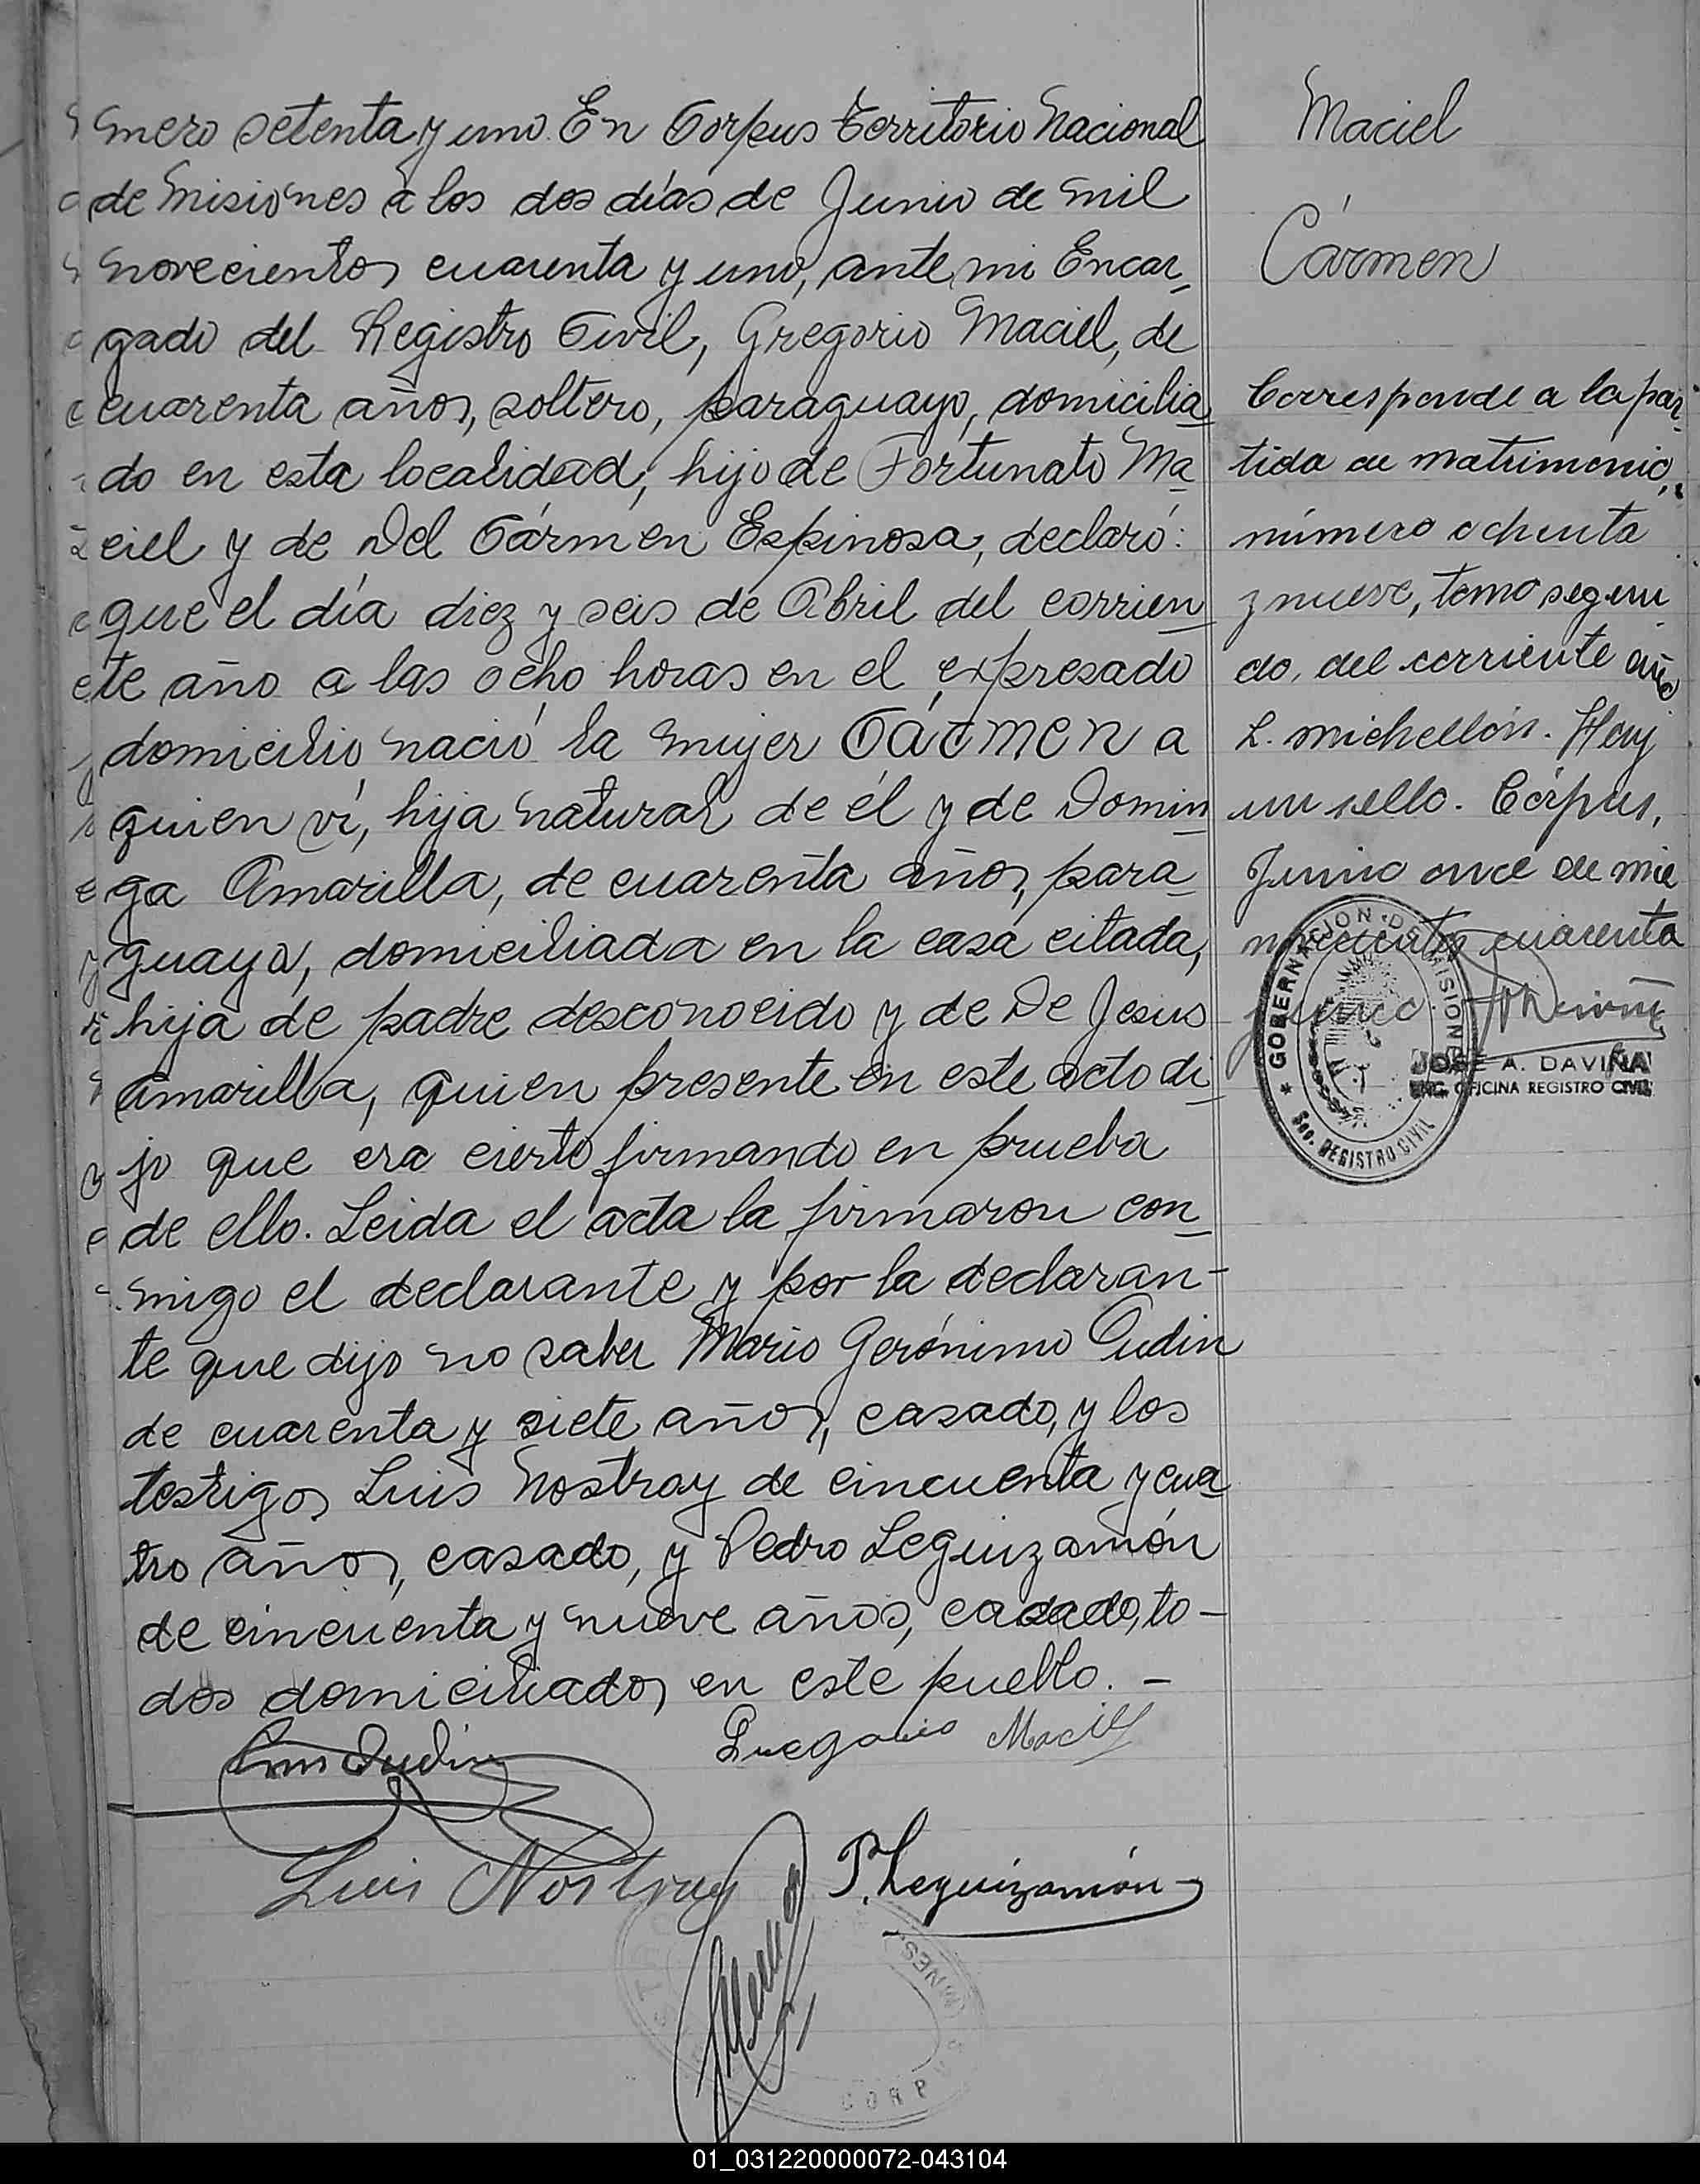 mero setenta y uno. En Corpus territorio Nacional
de Misiones a los dos días de Junio de mil
novecientos cuarenta y uno, ante mi Encar
gado del Registro Civil, Gregorio Maciel, de
cuarenta años, soltero, paraguayo, domicilia
do en esta localidad, hijo de Fortunato Ma
ciel y de Del Cármen Espinosa, declaró:
que el día diez y seis de Abril del corrien
te año a las ocho horas en el expresado
domicilio nació la mujer Cármen a
quien ví, hija natural de él y de Domin
ga Amarilla, de cuarenta años, para
guaya, domiciliada en la casa citada,
hija de padre desconocido y de De Jesus
Amarilla, quien presente en este acto di
jo que era cierto firmando en prueba
de ello. Leida el acta la firmaron con
migo el declarante y por la declaran-
te que dijo no saber Mario Gerónimo Oudin
de cuarenta y siete años, casado, y los
testigos Luis Nostray de cincuenta y cua
tro años, casado, y Pedro Leguizamón
de cincuenta y nueve años, casado, to-
dos domiciliados en este pueblo. -
Oudin
Gregorio Maciel
Luis Nostray
P. Leguizamón
Maciel
Cármen
Corresponde a la par
tida de matrimonio,
número ochenta
y nueve, tomo segun
do, del corriente año
L. Michellón. Hay
un sello. Córpus,
Junio once de mil
novecientos cuarenta
y uno.
GOBERNACION DE MISIONES
Sec. REGISTRO CIVIL
JOSE A. DAVIÑA
ENC. OFICINA REGISTRO CIVIL
CORP
IONES
01_031220000072-043104